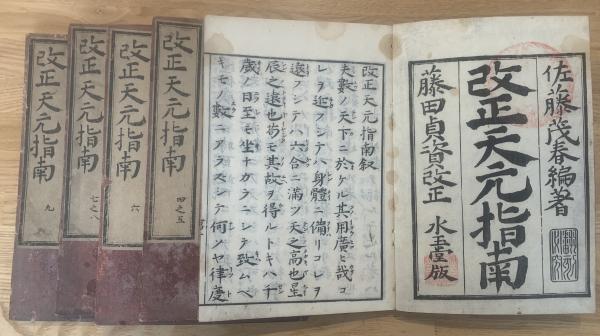 佐藤茂春編著
改正天元指南
藤田貞資改正 水玉堂版
改正天元指南叙
夫数ノ天下ニ於ケル其用廣ヒ哉コ
レヲ近フシテハ身體ニ備リコレヲ
遠フシテハ六合ニ満ツ天之高也星
辰之遠也苟モ其故ヲ得ルトキハ千
歳ノ日至モ坐ナカラニシテ致ムベ
キモノ数ニアラスシテ何ソヤ律度
改正天元指南
四之五
改正天元指南
六
改正天元指南
七之八
改正天元指南
九